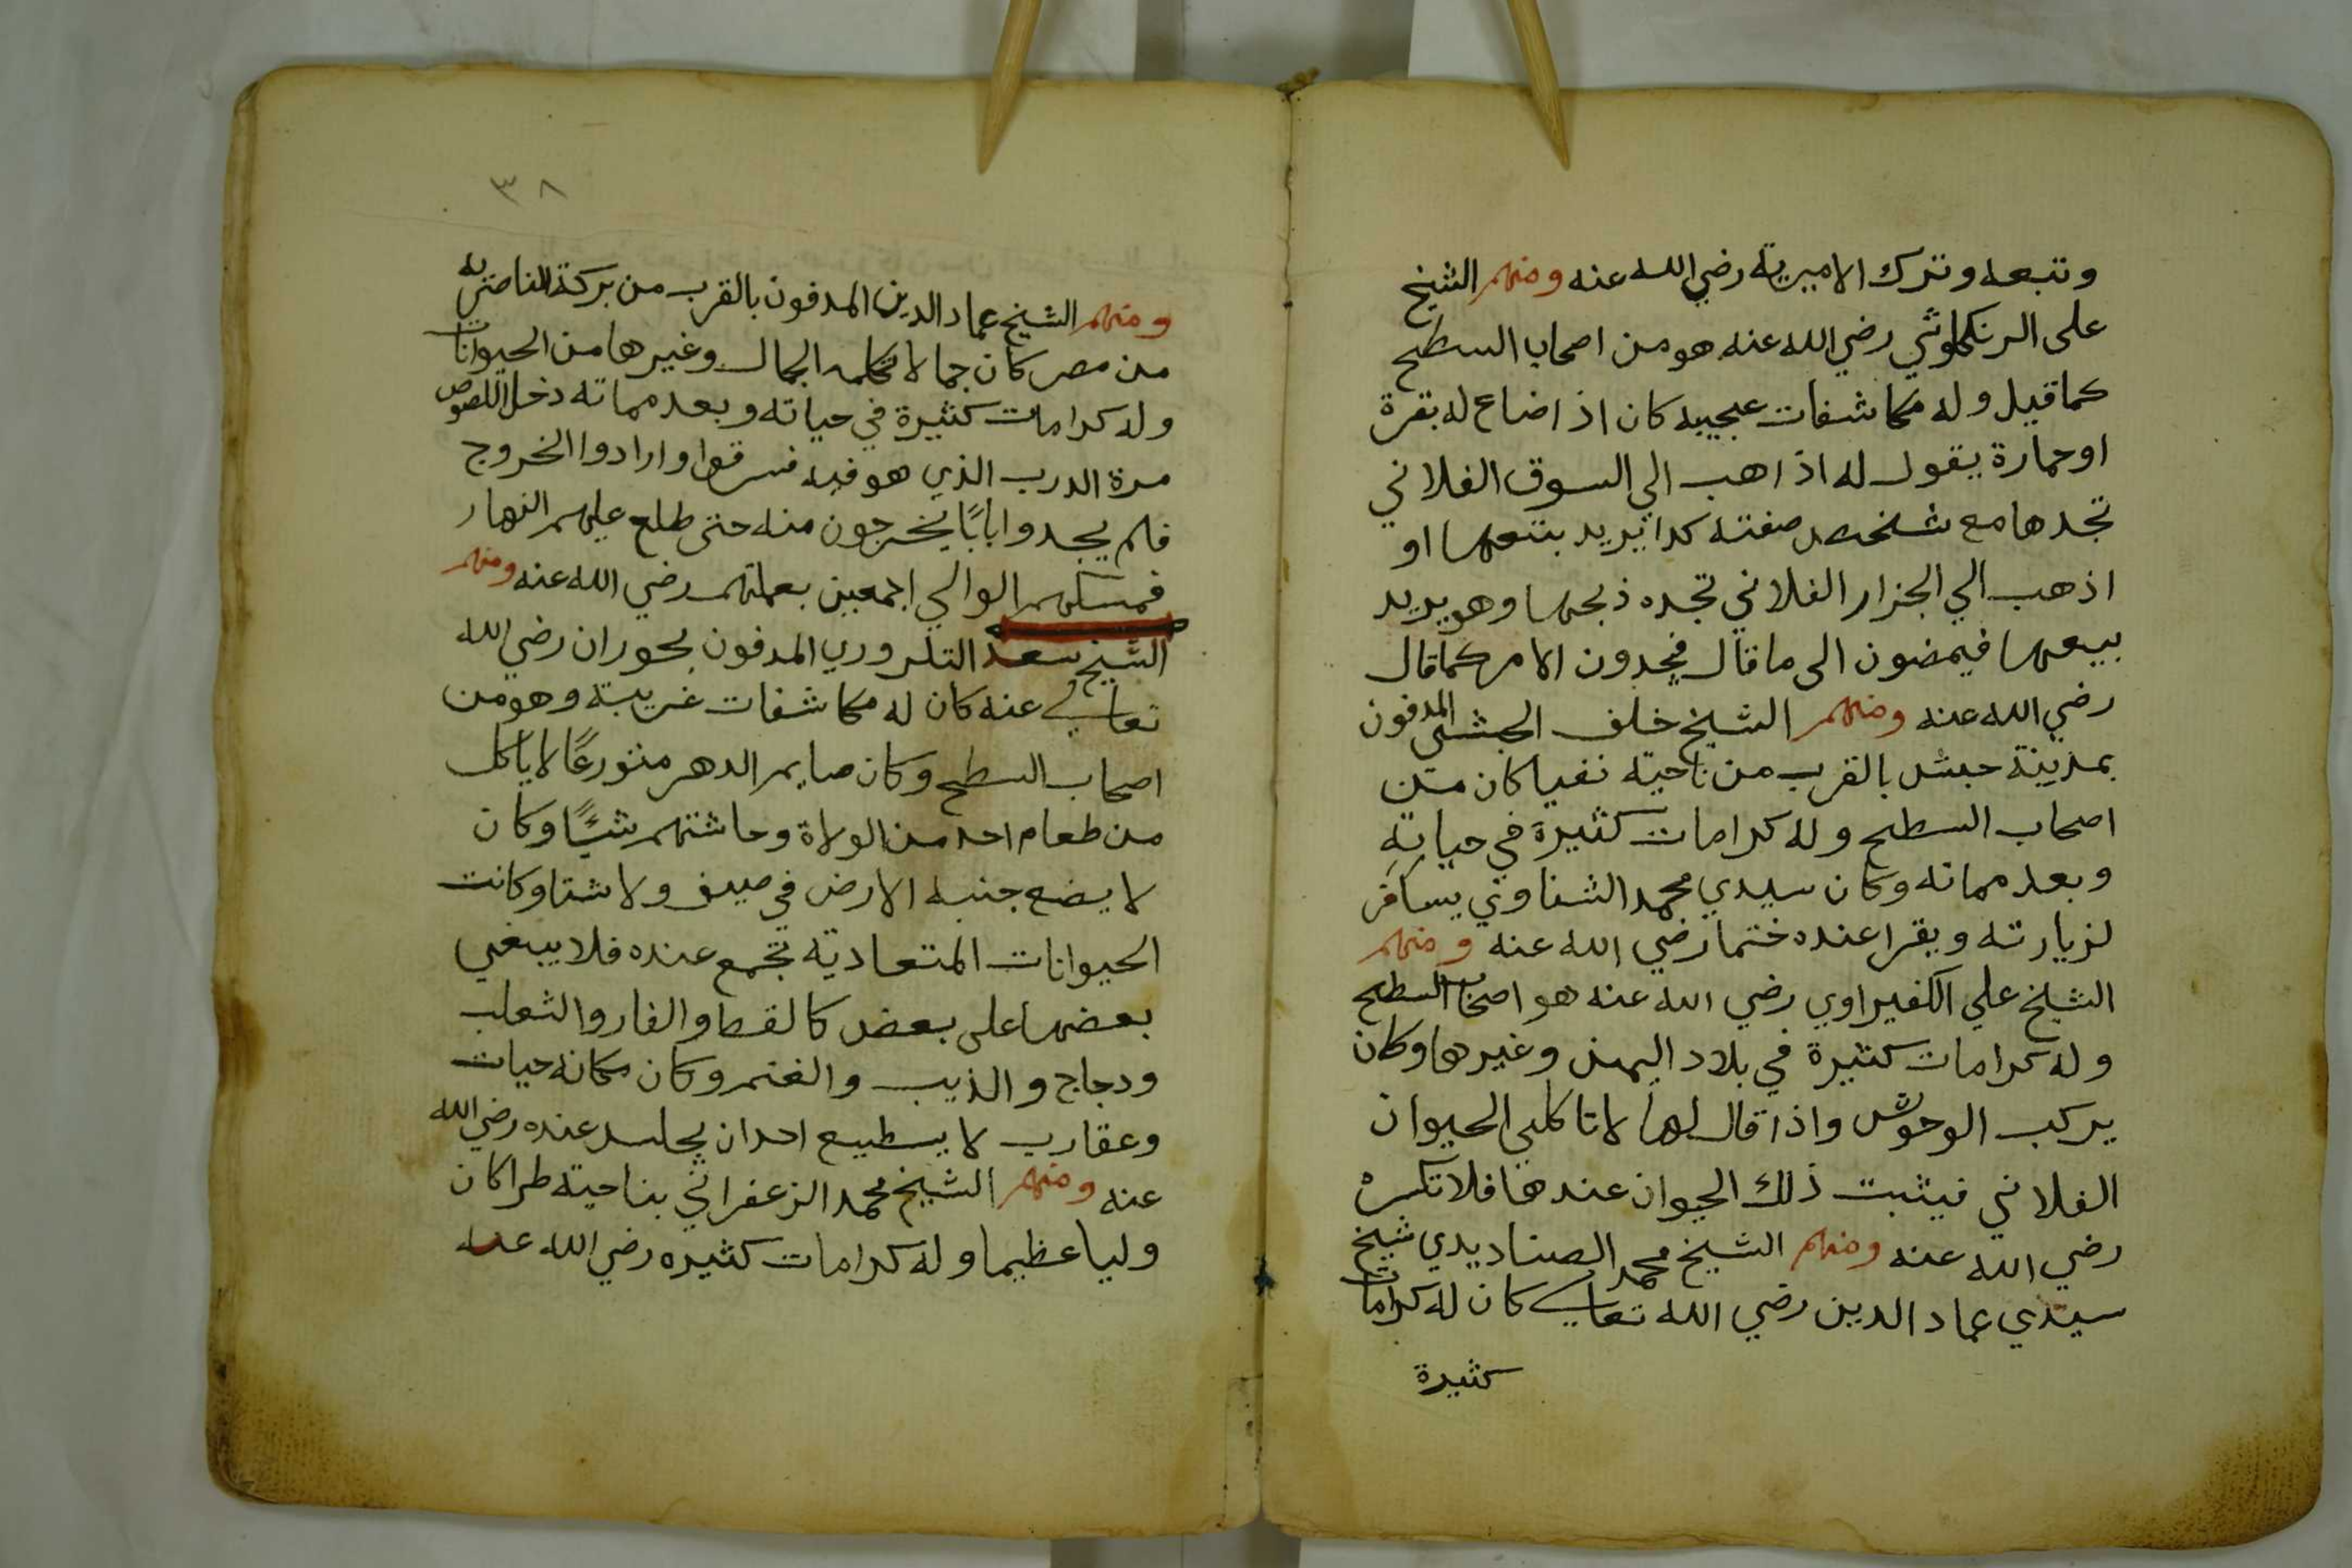 وتبعه وترك الاميرية رضي الله عنه ومنهم الشيخ
على الرنكلوني رضي الله عنه هو من اصحاب السطح
كما قيل وله مكاشفات عجيبه كان اذ اضاع له بقرة
او حمارة يقول له اذ اهب الي السوق الفلاني
تجدها مع شخص صفته كدا يريد بتعها او
اذهب الي الجزار الفلاني تجده ذبحها وهو يريد
بيعها فيمضون الى ما قال فيجدون الامر كما قال
رضي الله عنه ومنهم الشيخ خلف الحبشى المدفون
بمدينة حبش بالقرب من ناحية نفيا كان من
اصحاب السطح وله كرامات كثيرة في حياته
وبعد مماته وكان سيدي محمد الشناوي يسافر
لزيارته ويقرا عنده ختما رضي الله عنه ومنهم
الشيخ علي الكفيراوي رضي الله عنه هو اصحاب السطح
وله كرامات كثيرة في بلاد اليمن وغيرها وكان
يركب الوحوش واذا قال لها لا تاكلي الحيوان
الفلاني فيثبت ذلك الحيوان عندها فلا تكسره
رضي الله عنه ومنهم الشيخ محمد الصناديدي شيخ
سيدي عماد الدين رضي الله تعالي كان له كرامات
كثيرة
٣٨
ومنهم الشيخ عماد الدين المدفون بالقرب من بركة الناصريه
من مصر كان جمالا تكلمه الجمال وغيرها من الحيوانات
وله كرامات كثيرة في حياته وبعد مماته دخل اللصوص
مرة الدرب الذي هو فيه فسرقوا وارادوا الخروج
فلم يجدوا بابًا يخرجون منه حتى طلع عليهم النهار
فمسكهم الوالي اجمعين بعملتهم رضي الله عنه ومنهم
الشيخ سعد التكروري المدفون بحوران رضي الله
تعالي عنه كان له مكاشفات غريبة وهو من
اصحاب السطح وكان صايم الدهر متورعًا لا ياكل
من طعام احد من الولاة وحاشتهم شيئًا وكان
لا يضع جنبه الارض في صيف ولا شتا وكانت
الحيوانات المتعادية تجمع عنده فلا يبغي
بعضها على بعض كالقط والفار والثعلب
ودجاج والذيب والغنم وكان مكانه حيات
وعقارب لا يسطيع احد ان يجلس عنده رضي الله
عنه ومنهم الشيخ محمد الزعفراني بناحية طرا كان
وليا عظيما وله كرامات كثيره رضي الله عنه